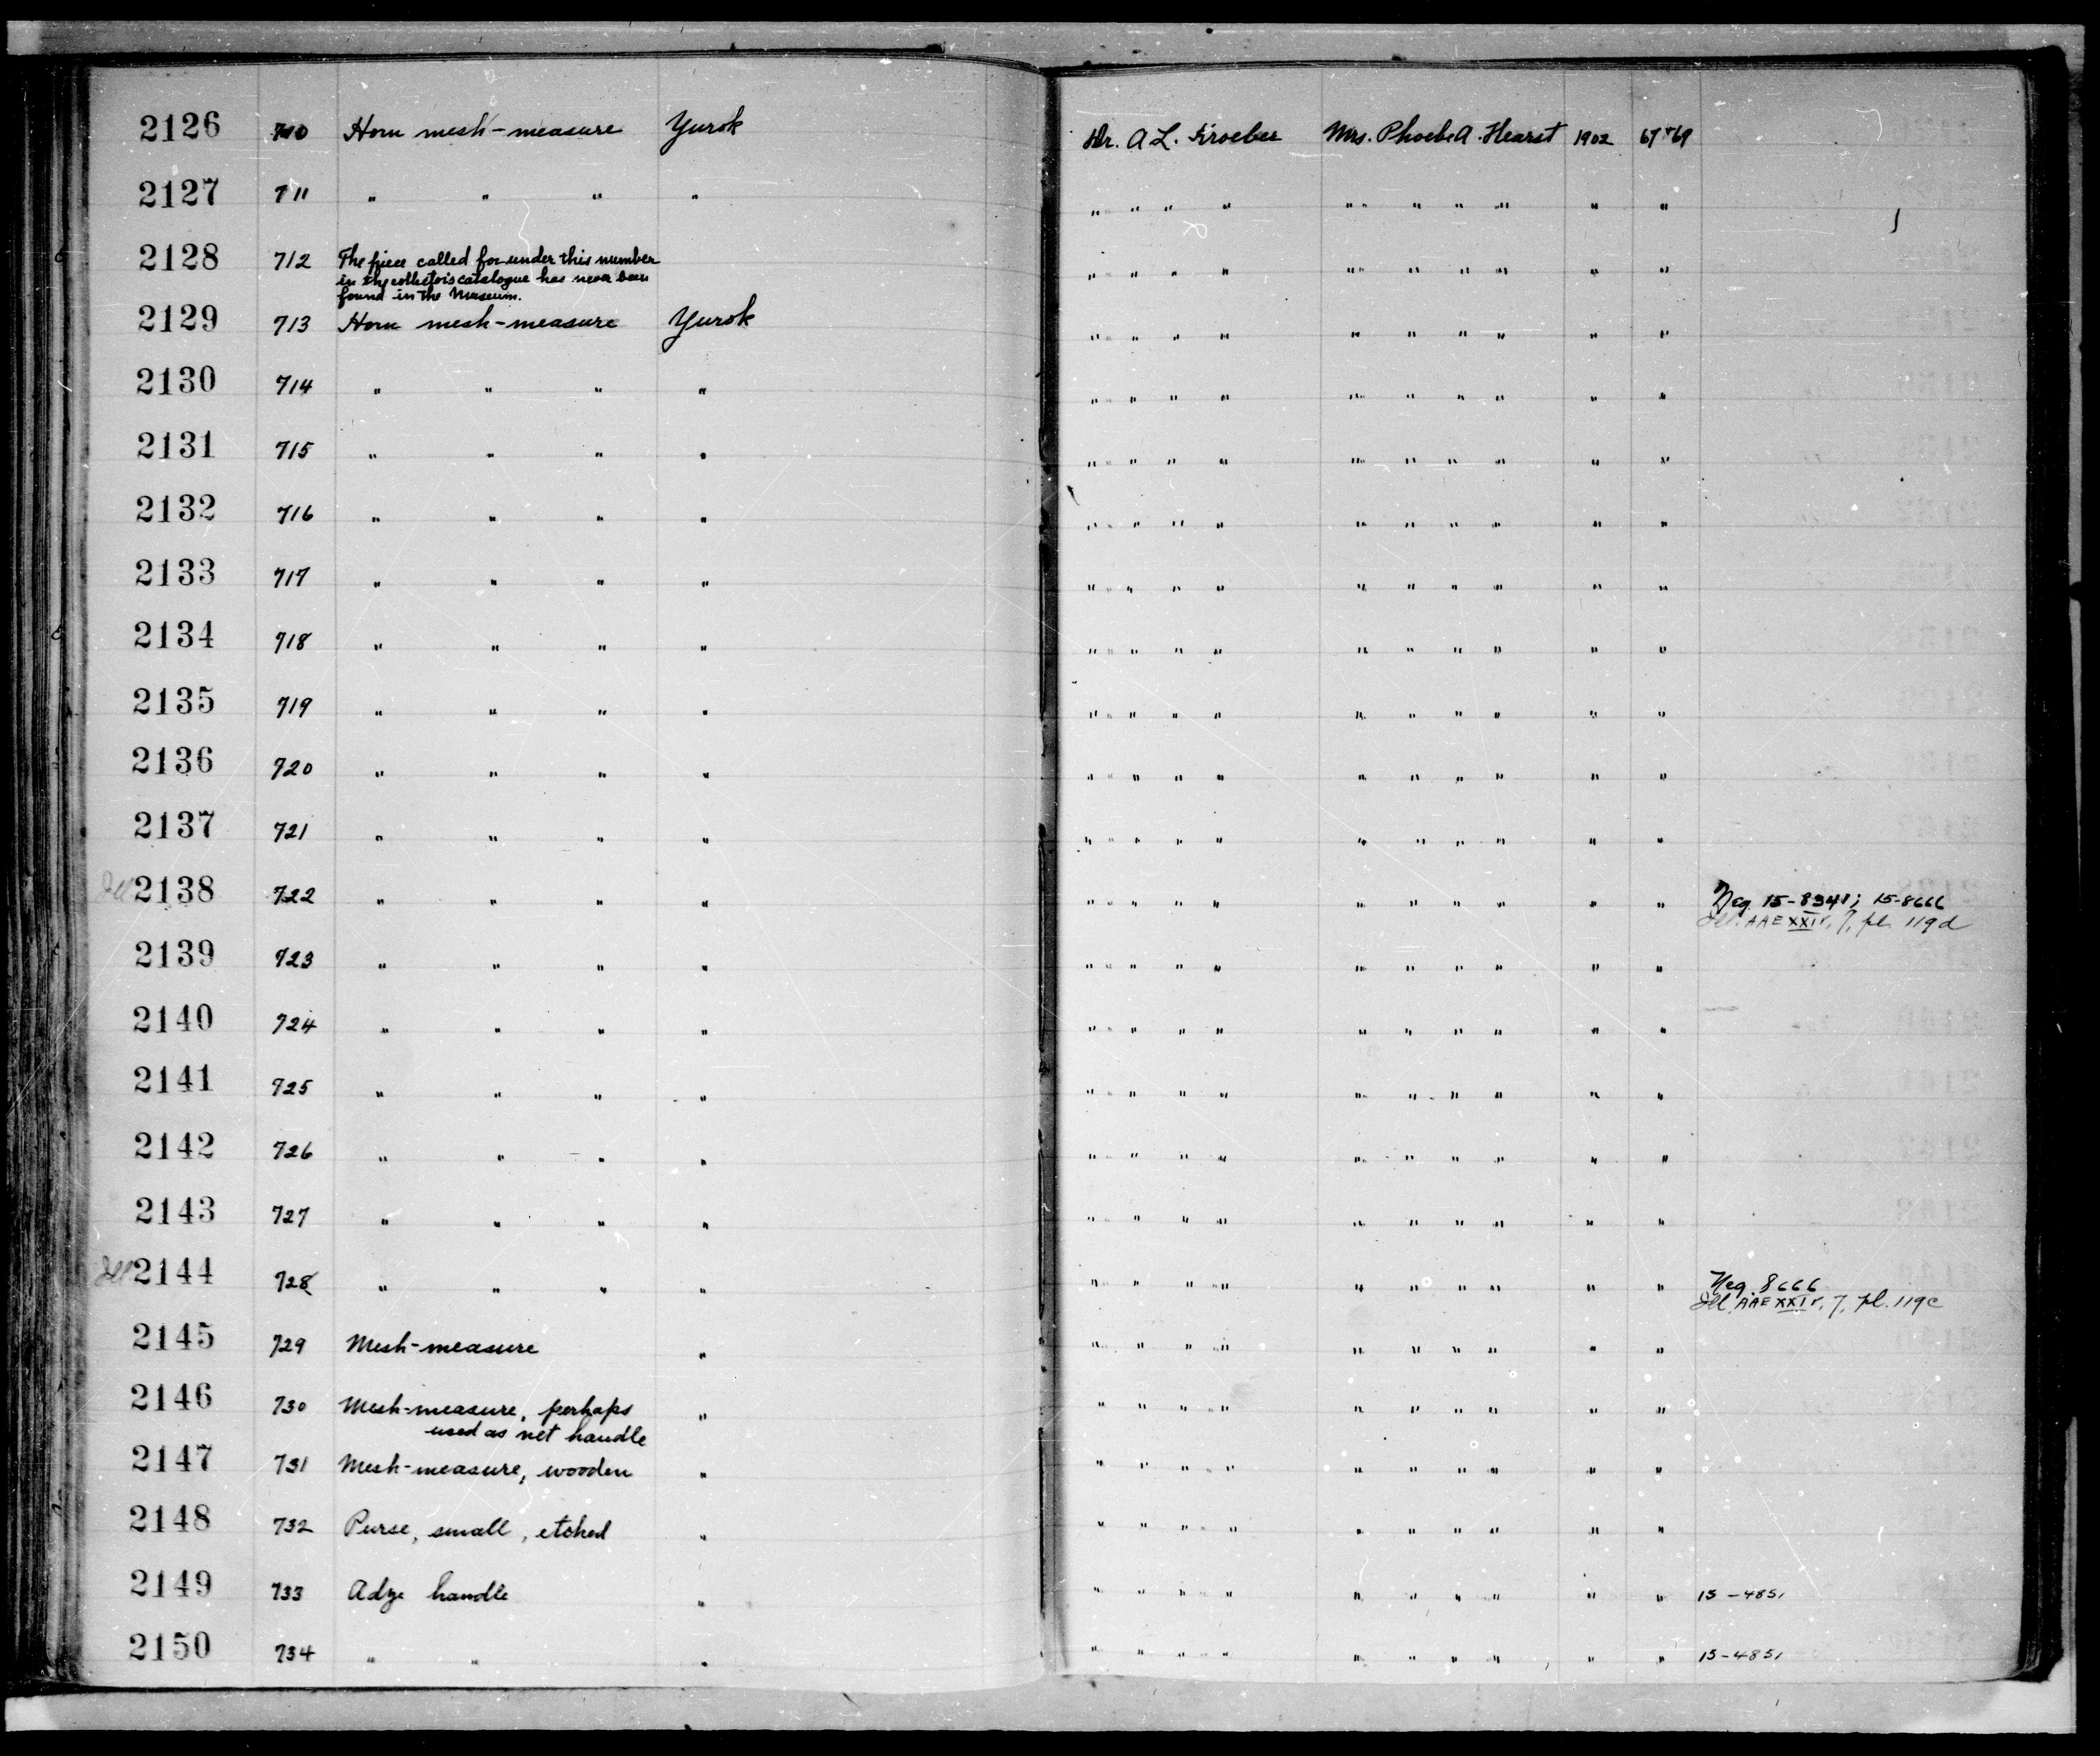 2126 710 Horn mesh-measure Yurok Dr. A L. Kroeber Mrs. Phoebe A. Hearst 1902 67+69
2127 711 " " " " " " " " " " " " " "
2128 712 The piece called for under this number " " " " " " " " " "
in the collector's catalogue has never been
found in the Museum.
2129 713 Horn mesh-measure Yurok " " " " " " " " " "
2130 714 " " " " " " " " " " " " " "
2131 715 " " " " " " " " " " " " " "
2132 716 " " " " " " " " " " " " " "
2133 717 " " " " " " " " " " " " " "
2134 718 " " " " " " " " " " " " " "
2135 719 " " " " " " " " " " " " " "
2136 720 " " " " " " " " " " " " " "
2137 721 " " " " " " " " " " " " " "
Ill 2138 722 " " " " " " " " " " " " " " Neg 15-8941; 15-8666
Ill. AAE XXIV, 7, pl. 119d
2139 723 " " " " " " " " " " " " " "
2140 724 " " " " " " " " " " " " " "
2141 725 " " " " " " " " " " " " " "
2142 726 " " " " " " " " " " " " " "
2143 727 " " " " " " " " " " " " " "
Ill 2144 728 " " " " " " " " " " " " " " Neg. 8666
Ill. AAE XXIV, 7, pl. 119c
2145 729 Mesh-measure " " " " " " " " " " "
2146 730 Mesh-measure, perhaps " " " " " " " " " " "
used as net handle
2147 731 Mesh-measure, wooden " " " " " " " " " " "
2148 732 Purse, small, etched " " " " " " " " " " "
2149 733 Adze handle " " " " " " " " " " " 15-4851
2150 734 " " " " " " " " " " " " " 15-4851